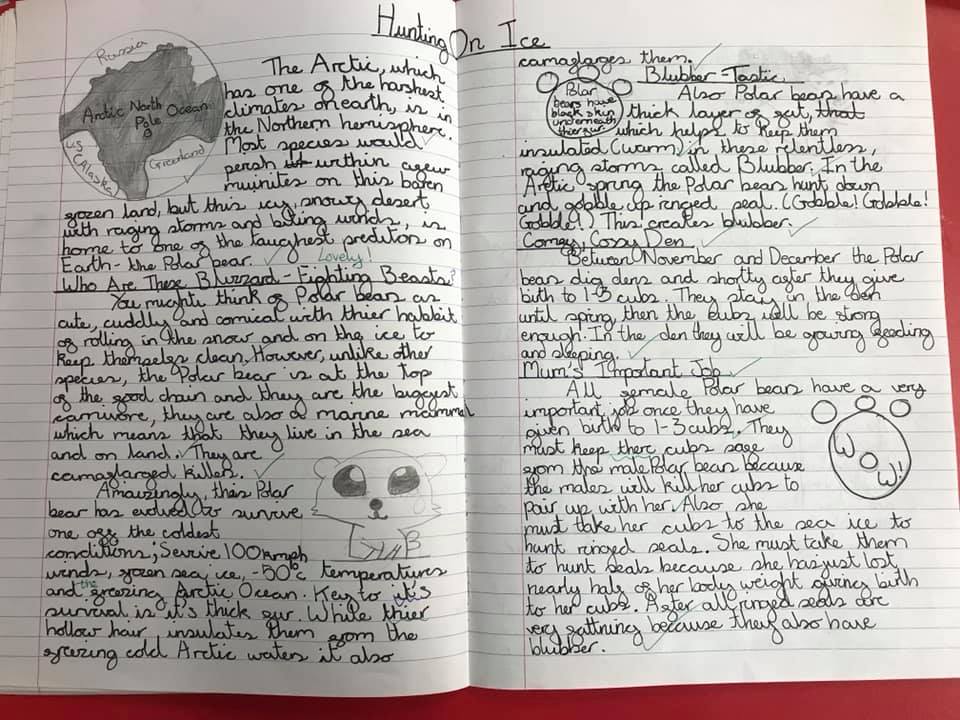 Hunting On Ice
Russia
Arctic North Ocean
Pole
US
(Alaska)
Greenland
The Arctic, which
has one of the harshest
climates on earth, is in
the Northern hemisphere.
Most species would
persh within
muinites on this baren
frozen land, but this icy, snowy desert,
with raging storms and biting winds, is
home to one of the toughest preditors on
Earth - the Polar bear.
Lovely!
Who Are These Blizzard - Fighting Beasts?
You mighti think of Polar bears as
cute, cuddly and comical with thier habbit
of rolling in the snow and on the ice to
keep themselfs clean. However, unlike other
species, the Polar bear is at the top
of the food chain and they are the biggest
carnivore, they are also a marine mammal
which means that they live in the sea
and on land. They are
camaflarged killers.
Amaizingly, this Polar
bear has evolved to survive
one off the coldest
conditions; Servive 100kmph
winds, frozen sea ice, -50°c temperatures
and the freezing Arctic Ocean. Key to it's
survival is it's thick fur. White thier
hollow hair, insulates them from the
freizing cold Arctic waters it also
camaflarges them.
Blubber-Tastic
Polar
bears have
black skin
underneath
thier fur.
Also Polar bears have a
thick layer of fat, that
which helps to keep them
insulated (warm) in these relentless,
raging storms called Blubber. In the
Arctic spring the Polar bears hunt down
and gobble up ringed seal. (Gobble! Gobble!
Gobble!) This creates blubber.
Comfy, Cossy Den
Between November and December the Polar
bears dig dens and shortly after they give
birth to 1-3 cubs. They stay in the den
until sping, then the cubs will be strong
enough. In the den they will be growing feeding
and sleeping.
Mum's Important Job
All female Polar bears have a very
important job once they have
given birth to 1-3 cubs. They
must keep there cubs safe
from the male Polar bears because
the males will kill her cubs to
pair up with her. Also she
must take her cubs to the sea ice to
hunt ringed seals. She must take them
to hunt seals because she has just lost
nearly half of her body weight giving birth
to her cubs. After all ringed seals are
very fattning because they also have
blubber.
W
O
W!